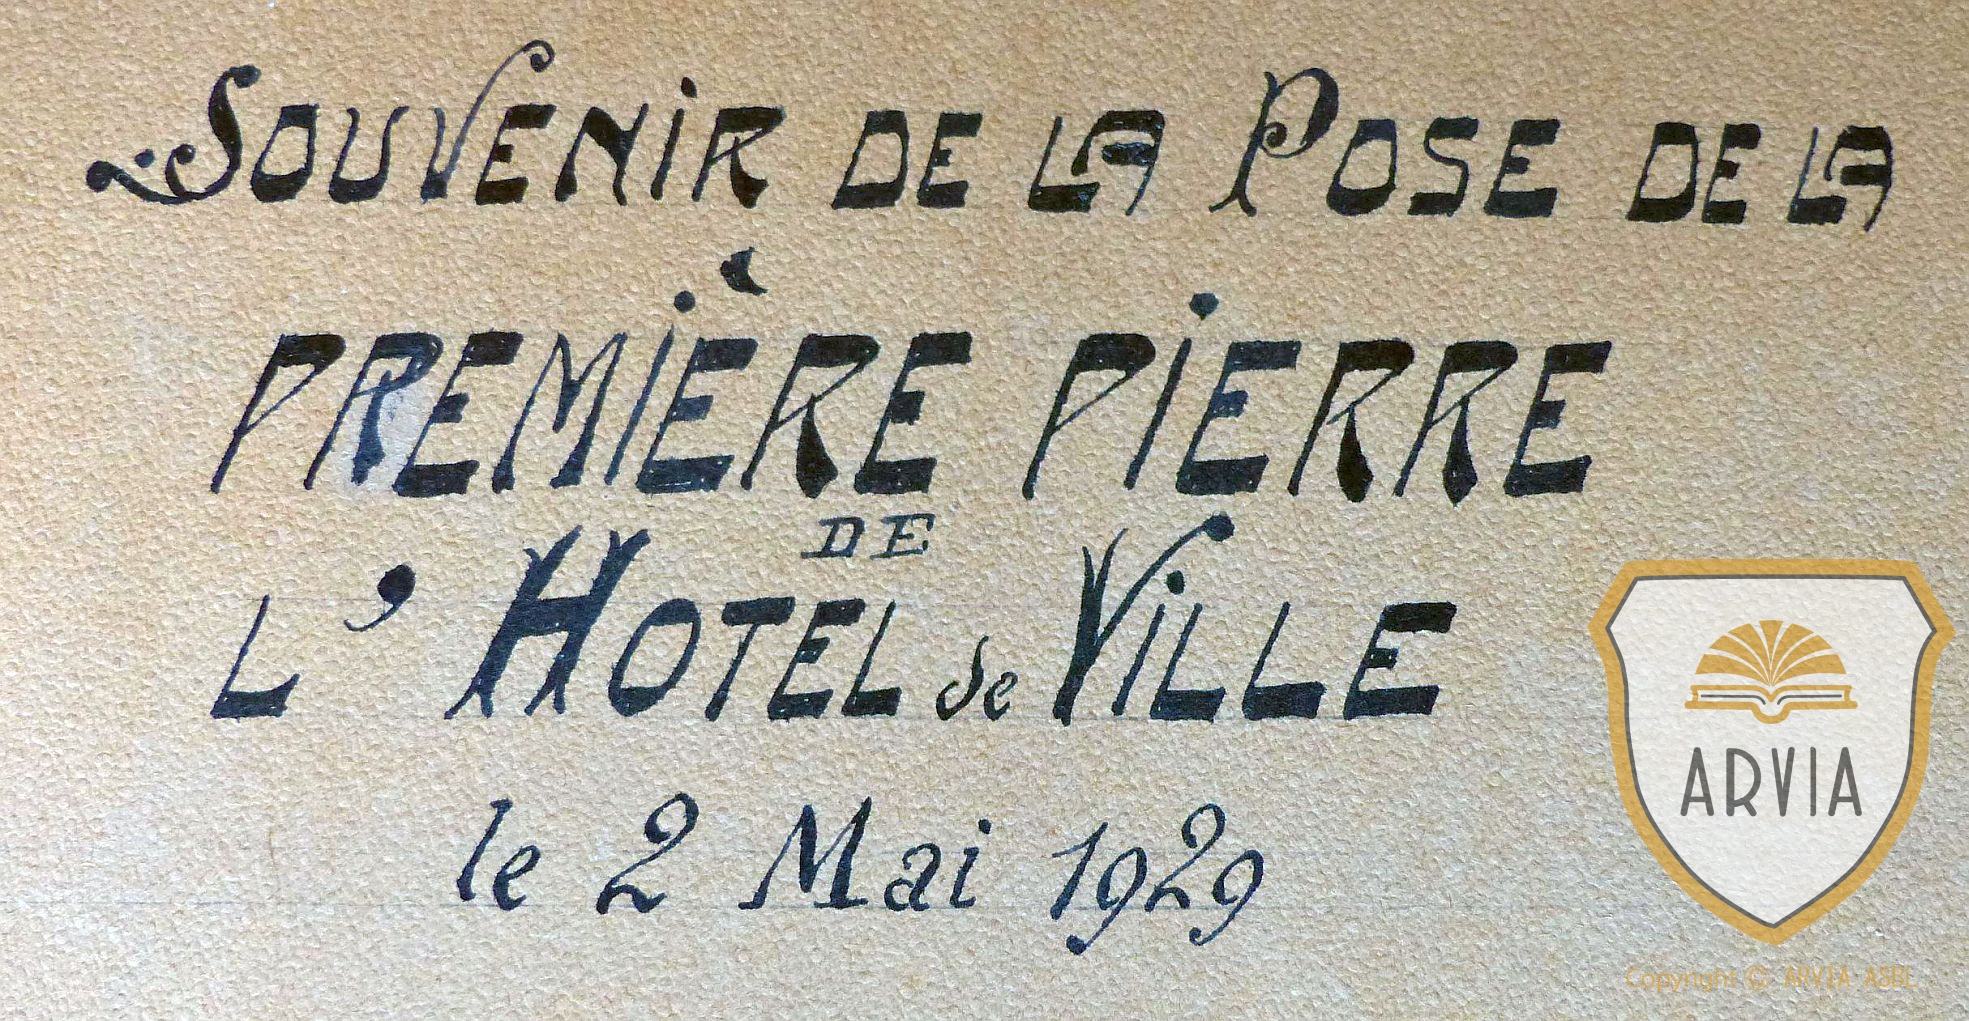 Souvenir de la Pose de la
PREMIÈRE PIERRE
DE
L'HOTEL de VILLE
le 2 Mai 1929
ARVIA
Copyright © ARVIA ASBL